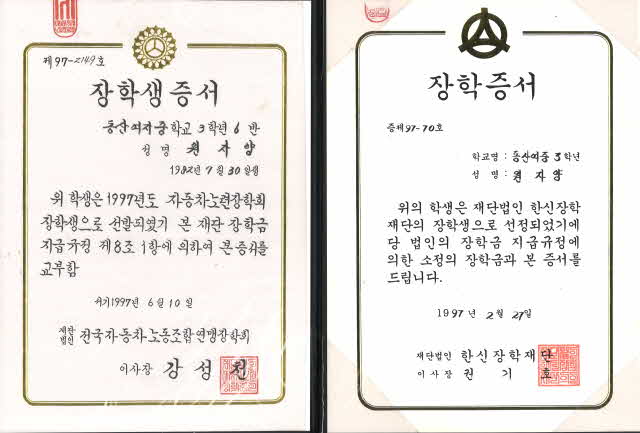 제97-2149호
장학생증서
동산여자중학교 3학년 6 반
성 명 원 자 양
1982년 7 월 30 일생
위 학생은 1997년도 자동차노련장학회
장학생으로 선발되였기 본 재단 장학금
지급규정 제8조 1항에 의하여 본증서를
교부함
서기1997년 6 월 10 일
재단
법인 전국자동차노동조합연맹장학회
이사장 강 성 천
장학증서
증제97-70호
학교명 : 동산여중 3학년
성 명 : 원 자 양
위의 학생은 재단법인 한신장학
재단의 장학생으로 선정되었기에
당 법인의 장학금 지급규정에
의한 소정의 장학금과 본 증서를
드립니다.
1997 년 2 월 27일
재단법인 한신장학재단
이사장 권 기 호